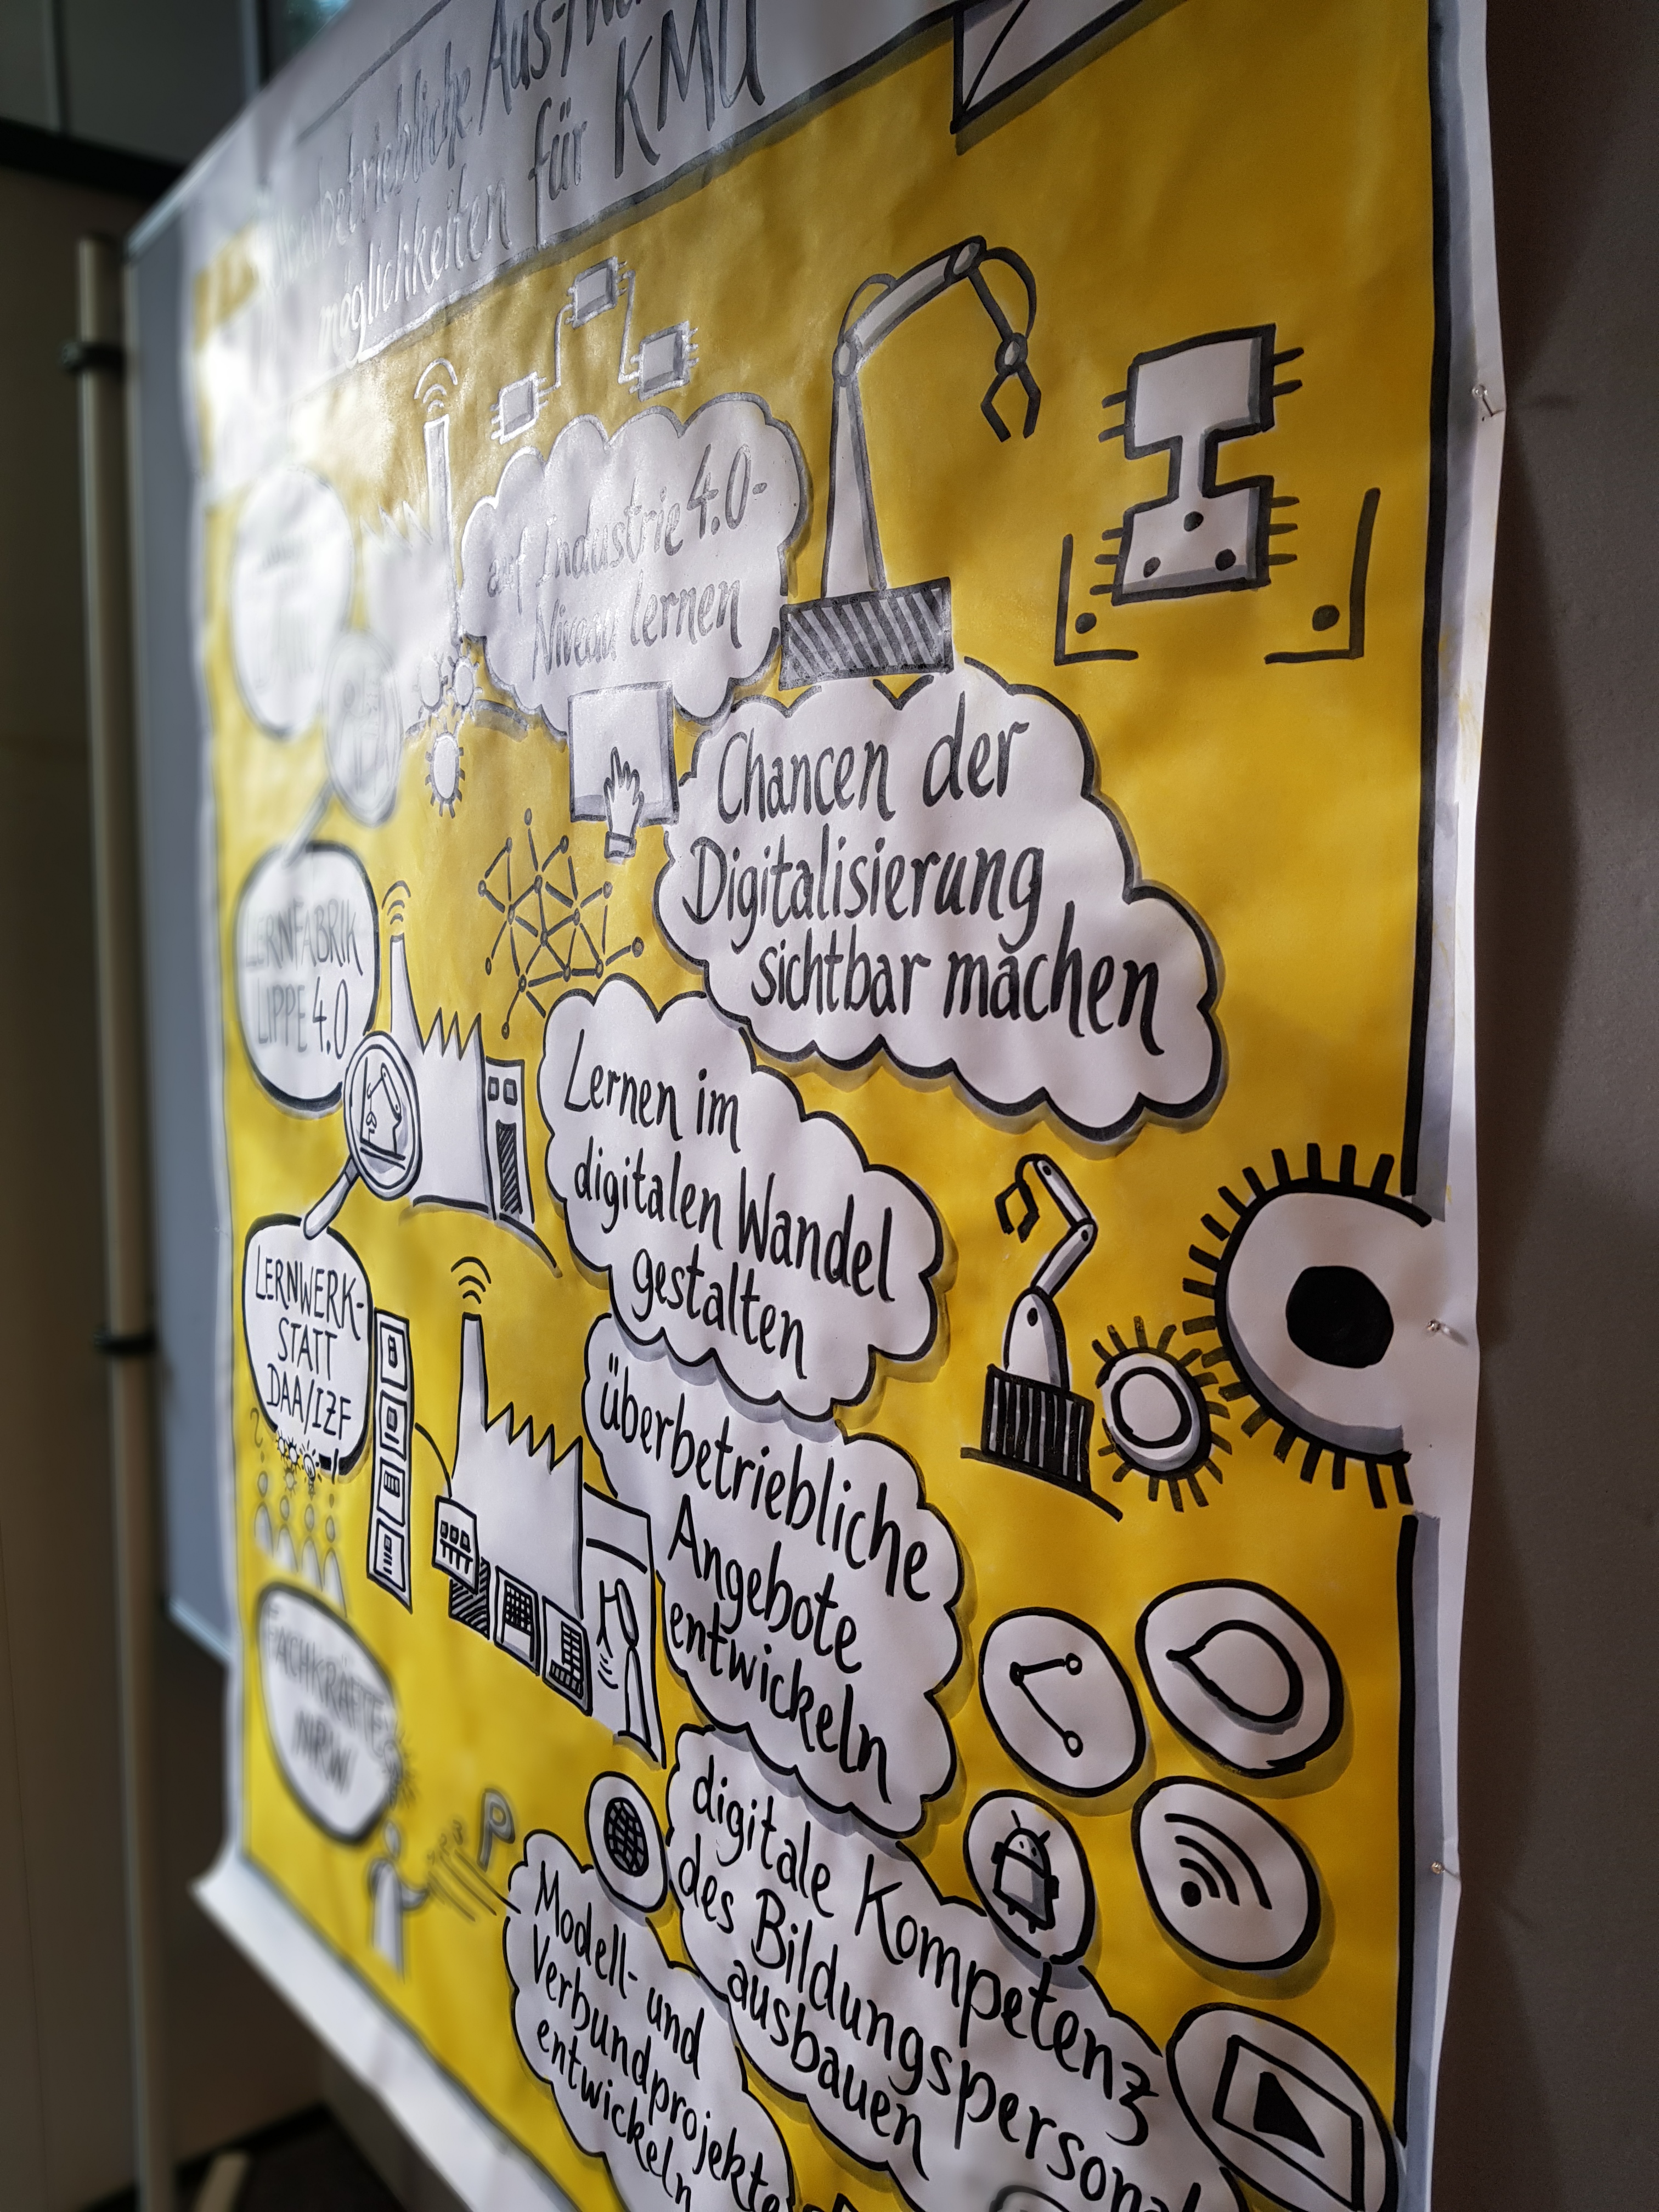 für KMU
möglichkeiten
auf Industrie 4.0-
Niveau lernen
Chancen der
Digitalisierung
sichtbar machen
LERNFABRIK
LIPPE 4.0
Lernen im
digitalen Wandel
gestalten
LERNWERK-
STATT
DAA/IZF
überbetriebliche
Angebote
entwickeln
FACHKRÄFTE
NRW
digitale Kompetenz
des Bildungspersonal
ausbauen
Modell- und
Verbundprojekte
entwickeln